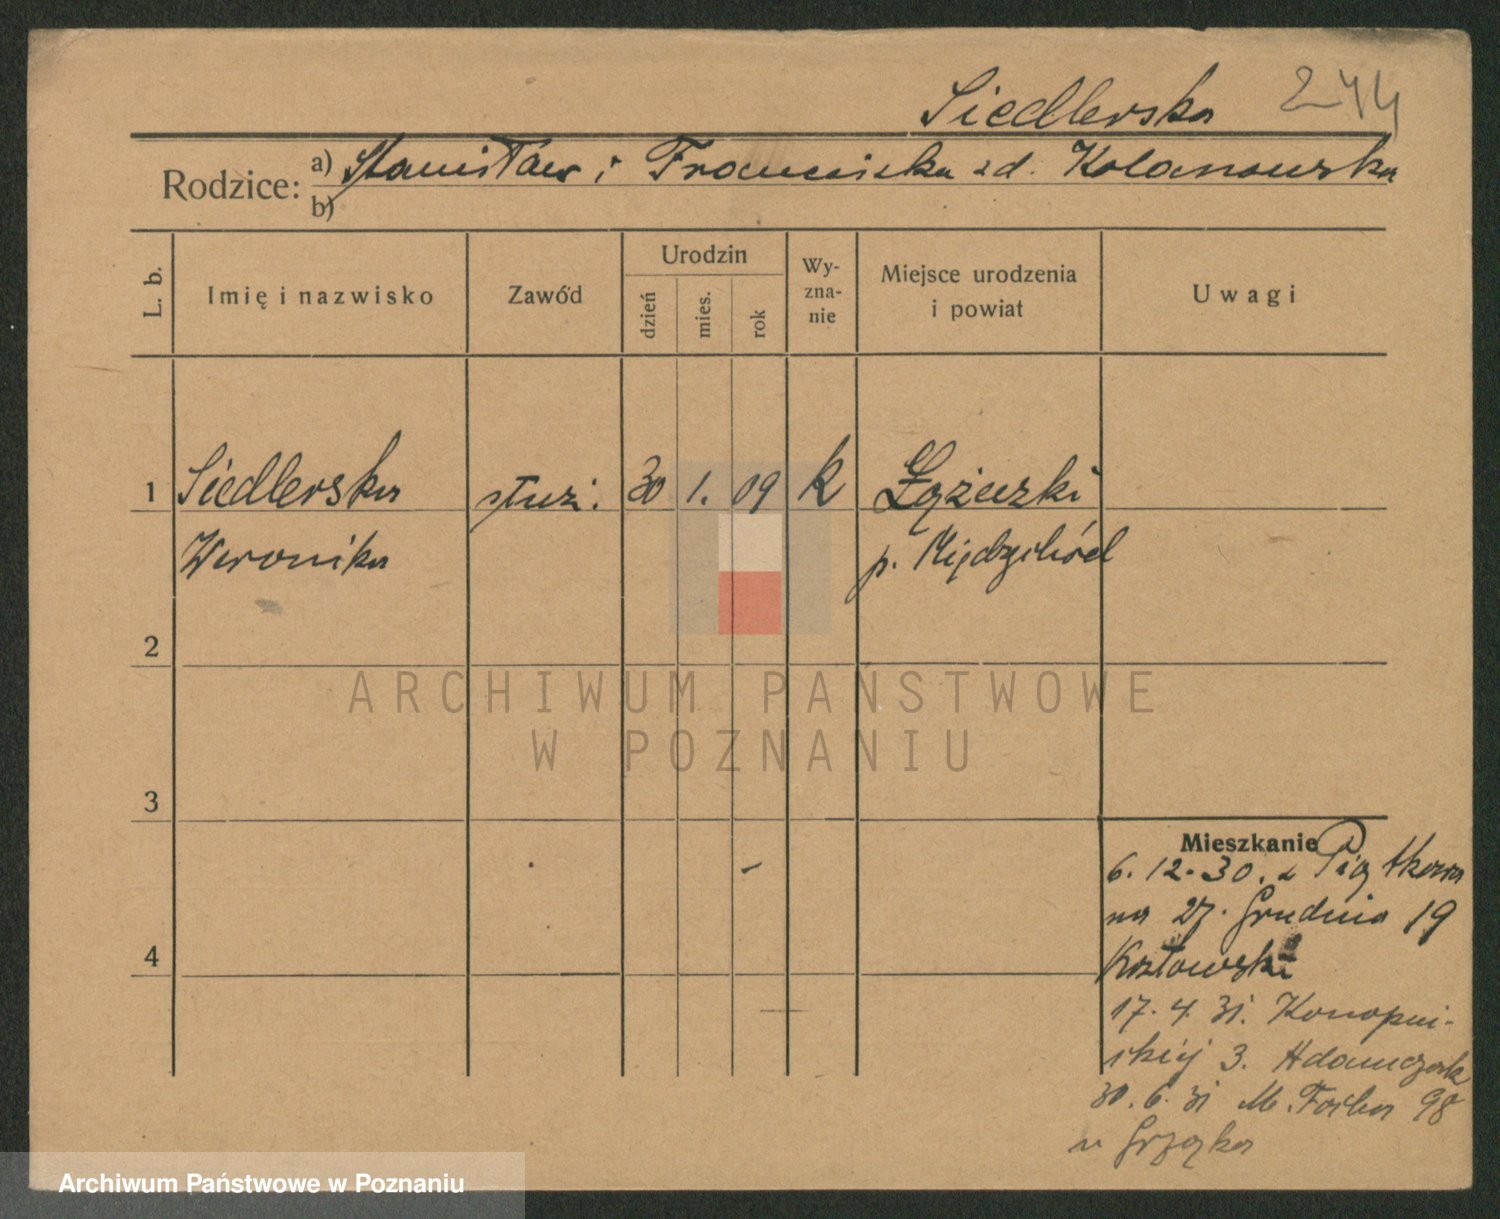 Siedlerska 244
Rodzice: a) Stanisław i Franciszka zd. Kolanowska
b)
L. b.
Imię i nazwisko
Zawód
Urodzin
dzień
mies.
rok
Wy-
zna-
nie
Miejsce urodzenia
i powiat
Uwagi
1 Siedlerska służ. 30 1. 09 k
Weronika p. Międzychód
2
ARCHIWUM PAŃSTWOWE
W POZNANIU
3
Mieszkanie
6. 12. 30. z Piątkowa
na 27. Grudnia 19
Kozłowski
17. 4. 31. Konopni-
skiej 3. Adamczak
30. 6. 31 M. Focha 98
u
4
Archiwum Państwowe w Poznaniu